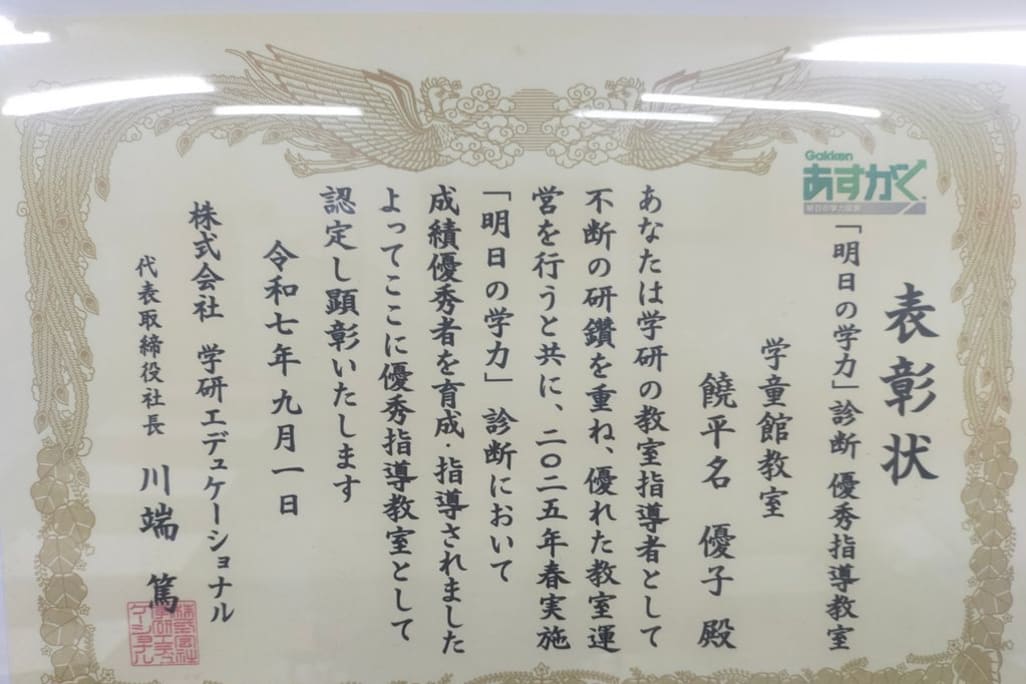 表彰状
Gakken
あすがく
明日の学力診断
「明日の学力」診断 優秀指導教室
学童館教室
饒平名 優子 殿
あなたは学研の教室指導者として
不断の研鑽を重ね、優れた教室運
営を行うと共に、二〇二五年春実施
「明日の学力」診断において
成績優秀者を育成・指導されました
よってここに優秀指導教室として
認定し顕彰いたします
令和七年九月一日
株式会社 学研エデュケーショナル
代表取締役社長 川端 篤
株式会社
学研エデュ
ケーショナル